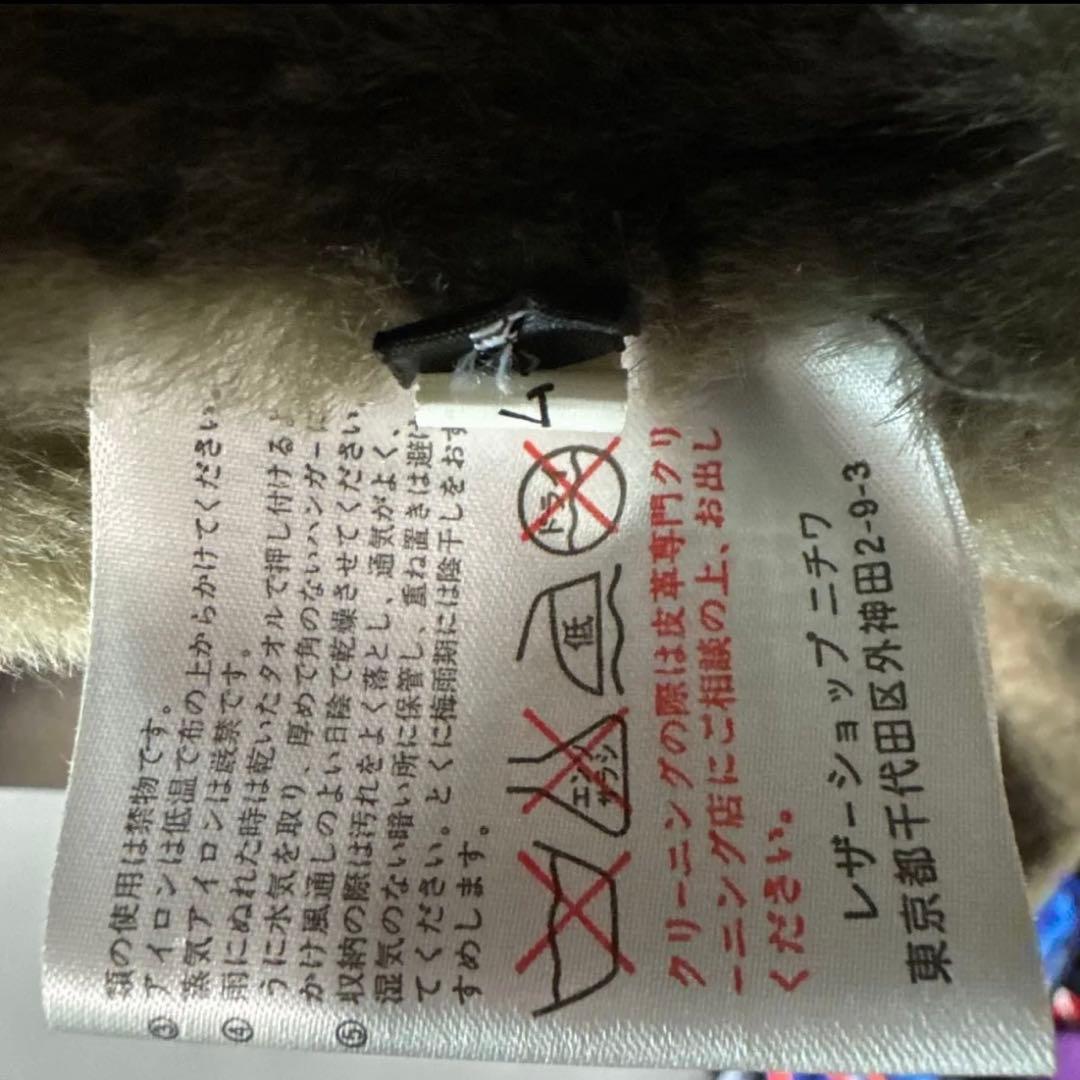 類の使用は禁物です。
③ アイロンは低温で布の上からかけてください。
蒸気アイロンは厳禁です。
④ 雨にぬれた時は乾いたタオルで押し付けるよ
うに水気を取り、厚めで角のないハンガーに
かけ風通しのよい日陰で乾燥させてください。
⑤ 収納の際は汚れをよく落とし、通気がよく、
湿気のない暗い所に保管し、重ね置きは避け
てください。とくに梅雨期には陰干しをおす
すめします。
エンソ
サラシ
低
ドライ
クリーニングの際は皮革専門クリ
ーニング店にご相談の上、お出し
ください。
レザーショップ ニチワ
東京都千代田区外神田2-9-3